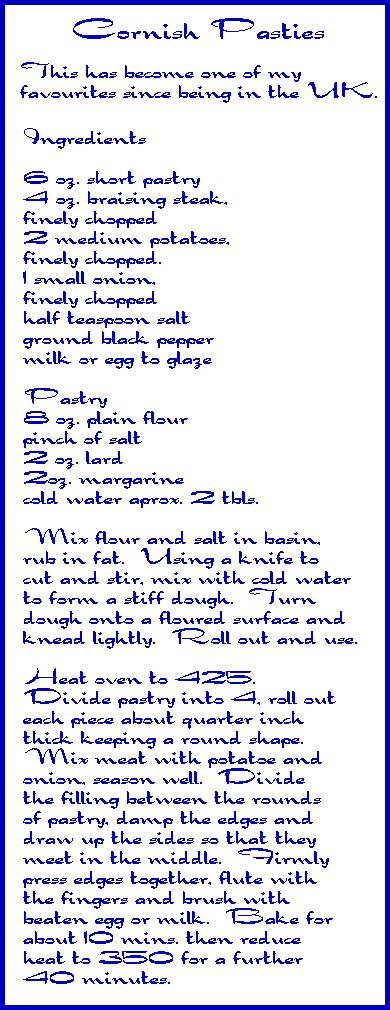 Cornish Pasties
This has become one of my
favourites since being in the UK.
Ingredients
6 oz. short pastry
4 oz. braising steak,
finely chopped
2 medium potatoes,
finely chopped.
1 small onion,
finely chopped
half teaspoon salt
ground black pepper
milk or egg to glaze
Pastry
8 oz. plain flour
pinch of salt
2 oz. lard
2oz. margarine
cold water aprox. 2 tbls.
Mix flour and salt in basin,
rub in fat. Using a knife to
cut and stir, mix with cold water
to form a stiff dough. Turn
dough onto a floured surface and
knead lightly. Roll out and use.
Heat oven to 425.
Divide pastry into 4, roll out
each piece about quarter inch
thick keeping a round shape.
Mix meat with potatoe and
onion, season well. Divide
the filling between the rounds
of pastry, damp the edges and
draw up the sides so that they
meet in the middle. Firmly
press edges together, flute with
the fingers and brush with
beaten egg or milk. Bake for
about 10 mins. then reduce
heat to 350 for a further
40 minutes.